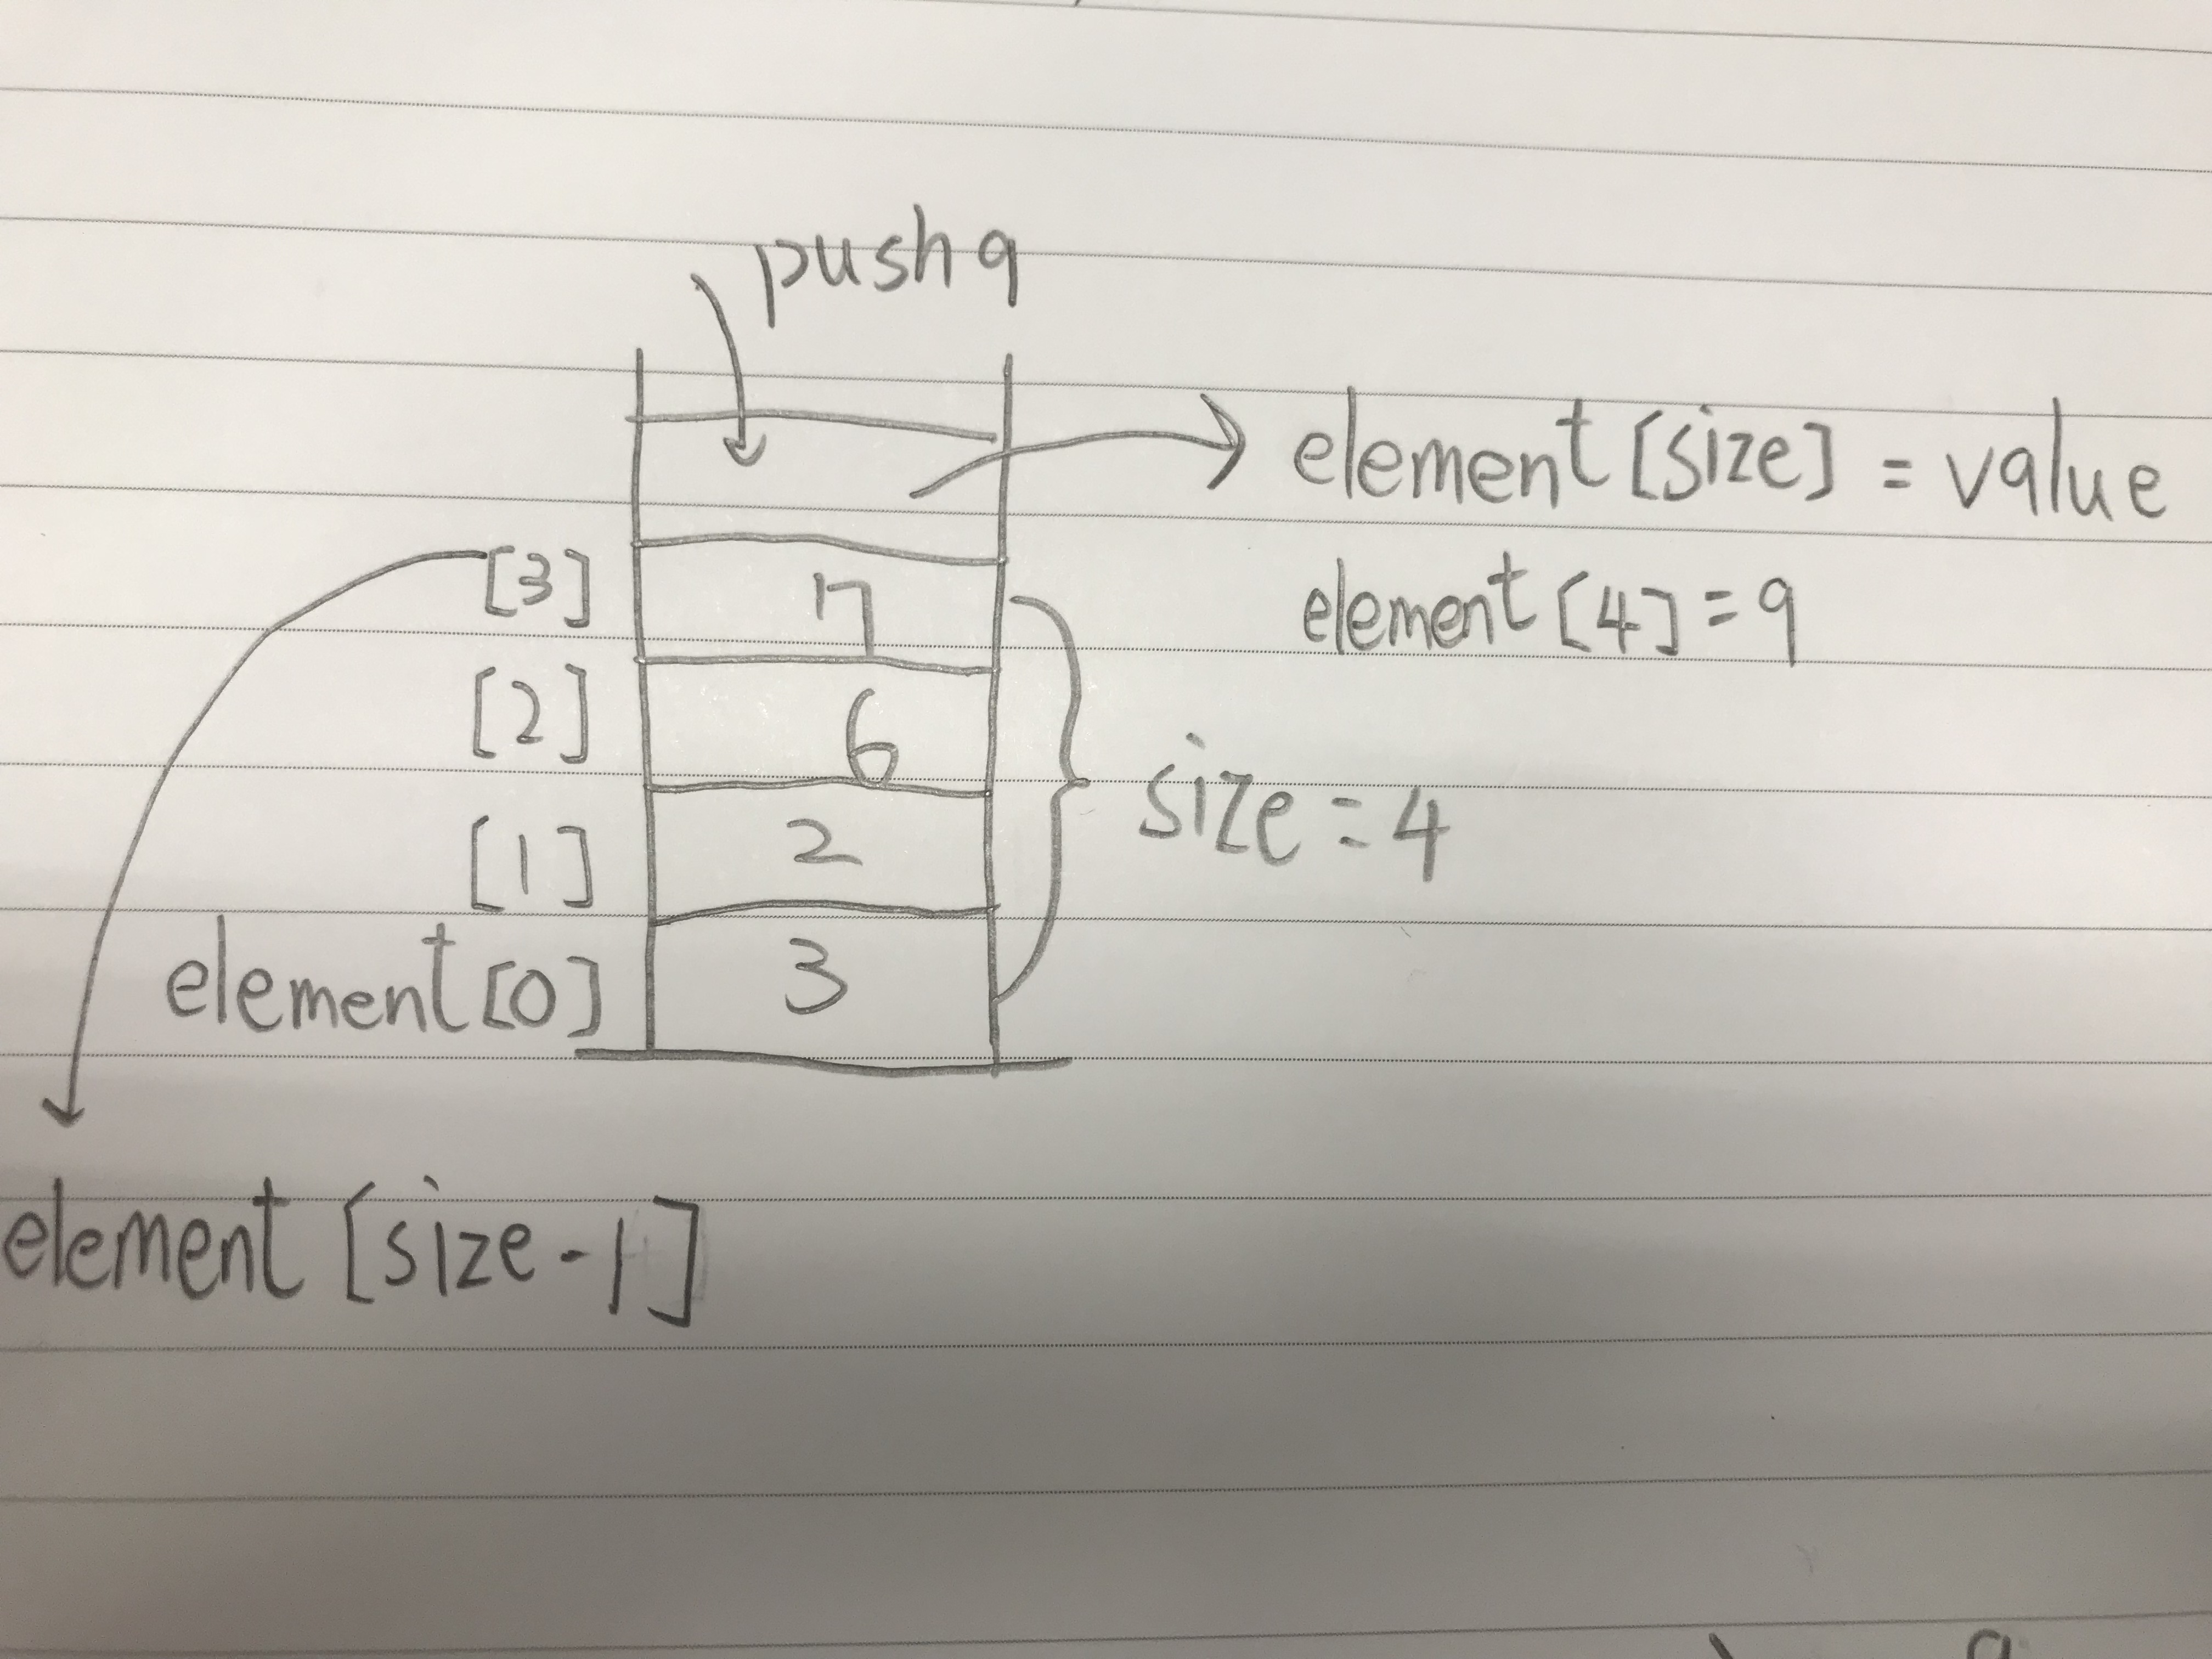 push 9
element[size] = value
[3] 7
element[4] = 9
[2] 6
size = 4
[1] 2
element[0] 3
element[size-1]